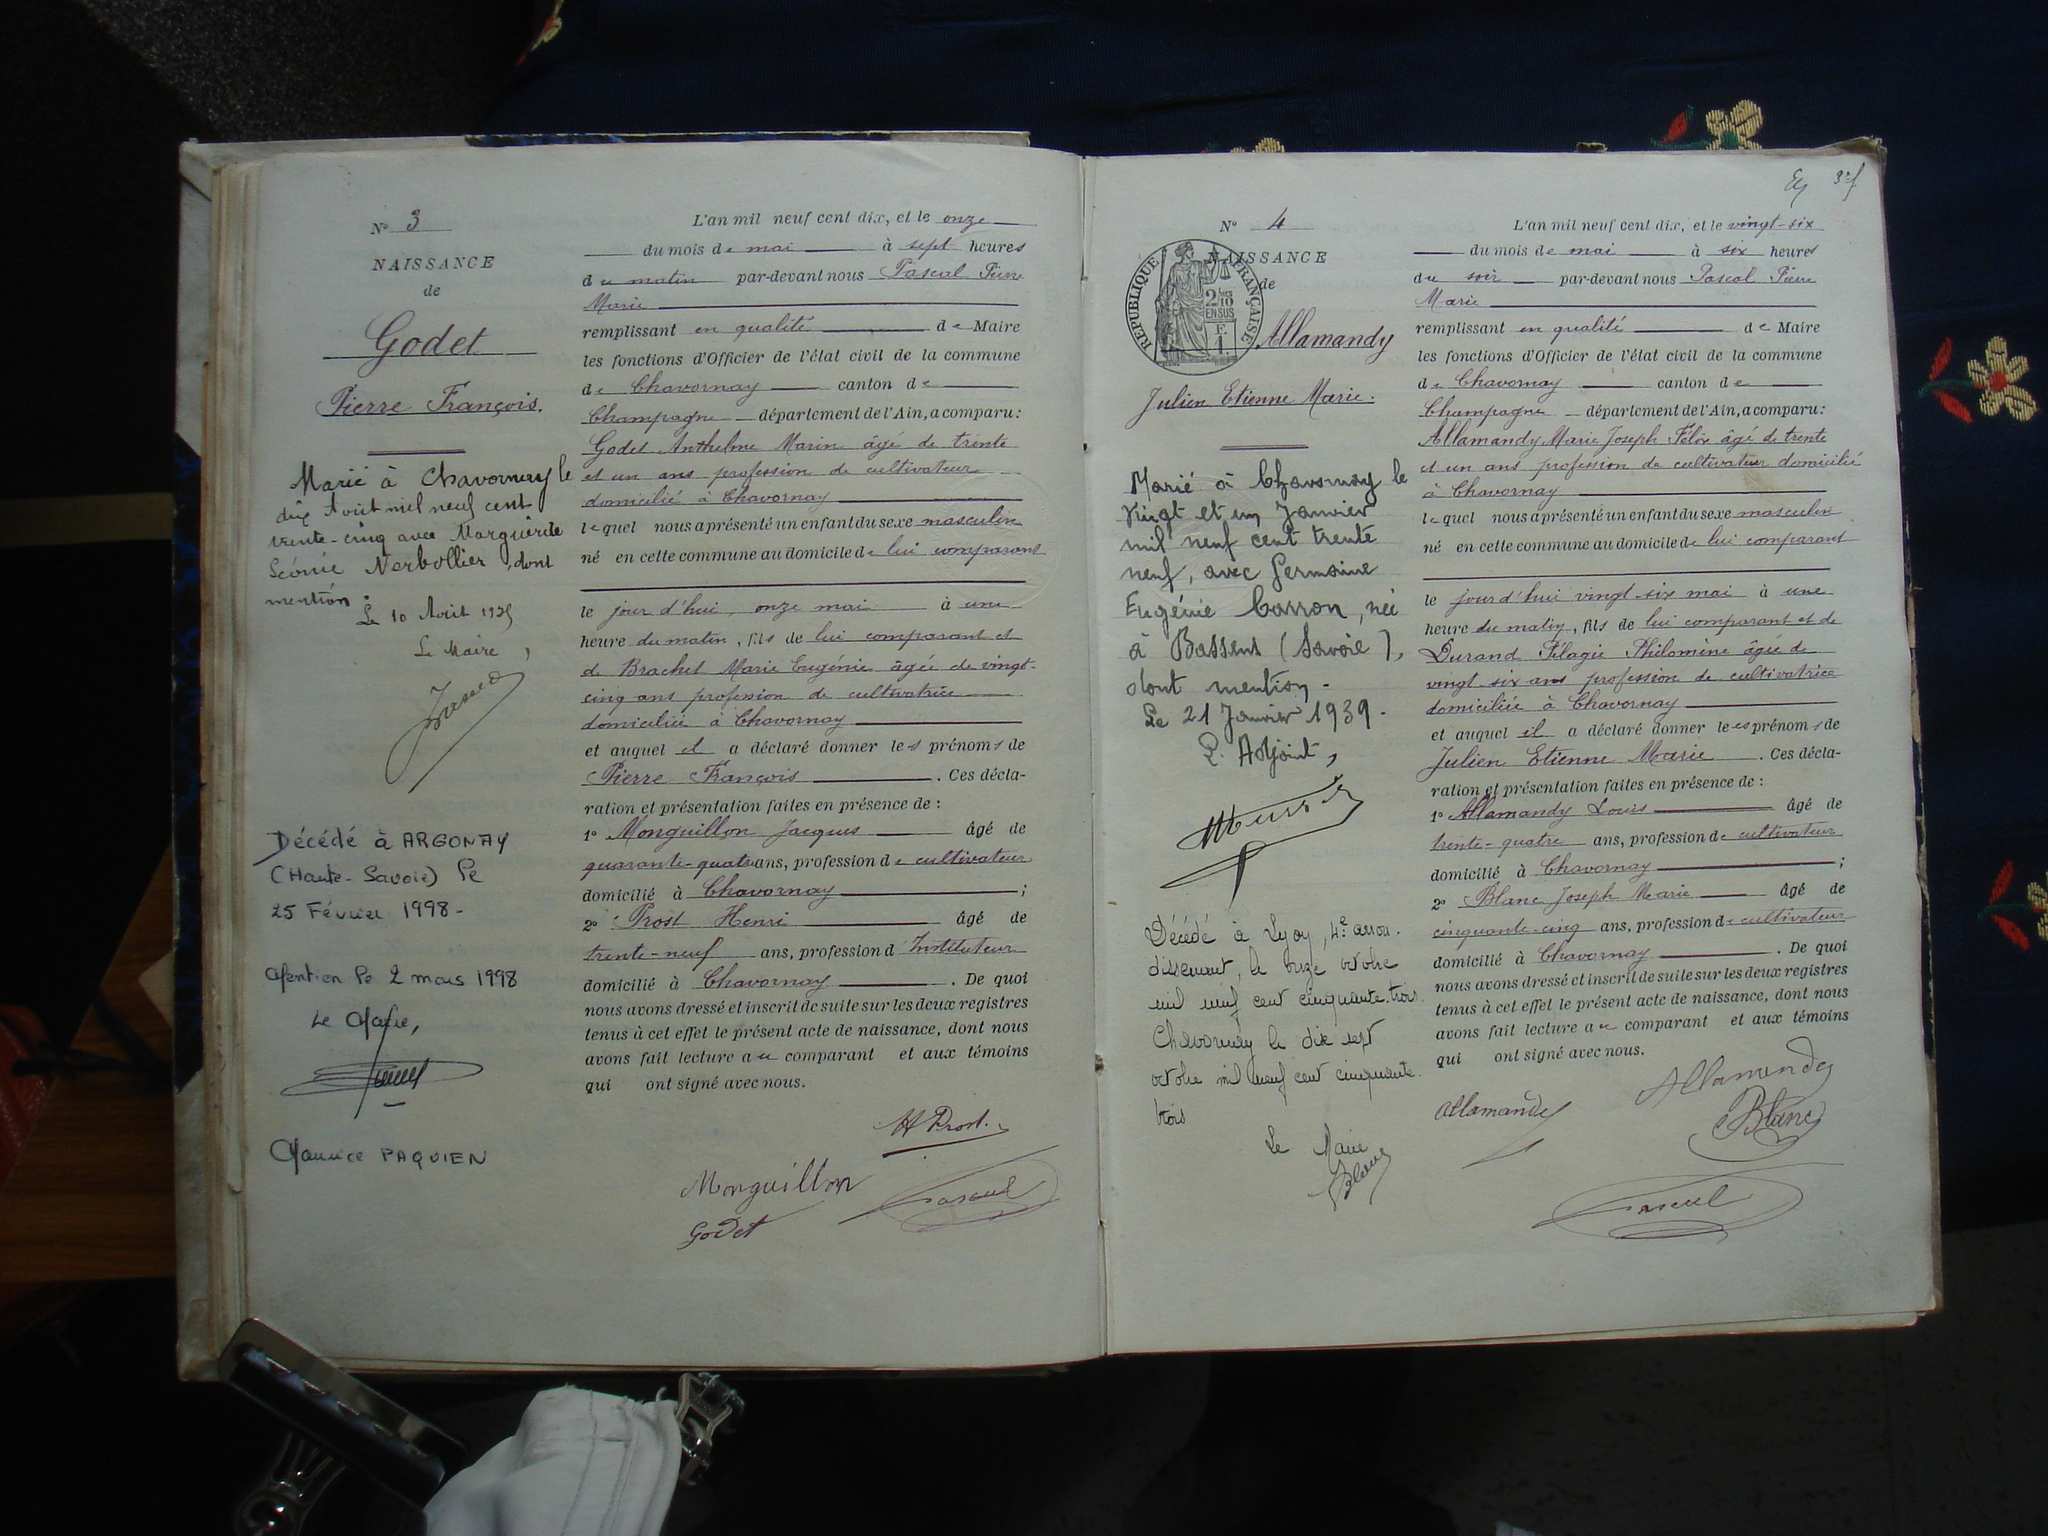 Nº 3
NAISSANCE
de
Godet
Pierre François.
Marié à Chavornay le
dix Août mil neuf cent
trente-cinq avec Marguerite
Léonie Nerbollier, dont
mention.
Le 10 Août 1935
Le Maire,
Décédé à ARGONAY
(Haute-Savoie) le
25 Février 1998-
Mention le 2 mars 1998
Le Maire,
Maurice PAQUIEN
L'an mil neuf cent dix, et le onze
du mois de mai à sept heures
du matin par-devant nous Pascal Pierre
Marie
remplissant en qualité de Maire
les fonctions d'Officier de l'état civil de la commune
de Chavornay canton de
Champagne département de l'Ain, a comparu:
Godet Anthelme Marin âgé de trente
et un ans profession de cultivateur
domicilié à Chavornay
lequel nous a présenté un enfant du sexe masculin
né en cette commune au domicile de lui comparant
le jour d'hui, onze mai à une
heure du matin, fils de lui comparant et
de Brachet Marie Eugénie âgée de vingt-
cinq ans profession de cultivatrice
domiciliée à Chavornay
et auquel il a déclaré donner les prénoms de
Pierre François . Ces décla-
ration et présentation faites en présence de :
1º Monguillon Jacques âgé de
quarante-quatre ans, profession de cultivateur
domicilié à Chavornay ;
2º Prost Henri âgé de
trente-neuf ans, profession d'Instituteur
domicilié à Chavornay . De quoi
nous avons dressé et inscrit de suite sur les deux registres
tenus à cet effet le présent acte de naissance, dont nous
avons fait lecture au comparant et aux témoins
qui ont signé avec nous.
H Prost.
Monguillon
Pascal
Godet
Nº 4
NAISSANCE
de
RÉPUBLIQUE FRANÇAISE
2/10
EN SUS
F.
1.
Allamandy
Julien Etienne Marie.
Marié à Chavornay le
vingt et un Janvier
mil neuf cent trente
neuf, avec Germaine
Eugénie Carron, née
à Bassens (Savoie),
dont mention-
Le 21 Janvier 1939-
L'Adjoint,
Décédé à Lyon, 4e arron-
dissement, le onze octobre
mil neuf cent cinquante-trois.
Chavornay le dix sept
octobre mil neuf cent cinquante-
trois
Le Maire
Blanc
L'an mil neuf cent dix, et le vingt-six
du mois de mai à six heures
du soir par-devant nous Pascal Pierre
Marie
remplissant en qualité de Maire
les fonctions d'Officier de l'état civil de la commune
de Chavornay canton de
Champagne département de l'Ain, a comparu:
Allamandy Marie Joseph Félix âgé de trente
et un ans profession de cultivateur domicilié
à Chavornay
lequel nous a présenté un enfant du sexe masculin
né en cette commune au domicile de lui comparant
le jour d'hui vingt-six mai à une
heure du matin, fils de lui comparant et de
Durand Pélagie Philomène âgée de
vingt-six ans profession de cultivatrice
domiciliée à Chavornay
et auquel il a déclaré donner les prénoms de
Julien Etienne Marie . Ces décla-
ration et présentation faites en présence de :
1º Allamandy Louis âgé de
trente-quatre ans, profession de cultivateur
domicilié à Chavornay ;
2º Blanc Joseph Marie âgé de
cinquante-cinq ans, profession de cultivateur
domicilié à Chavornay . De quoi
nous avons dressé et inscrit de suite sur les deux registres
tenus à cet effet le présent acte de naissance, dont nous
avons fait lecture au comparant et aux témoins
qui ont signé avec nous.
Allamandy
Allamandy
Blanc
Pascal